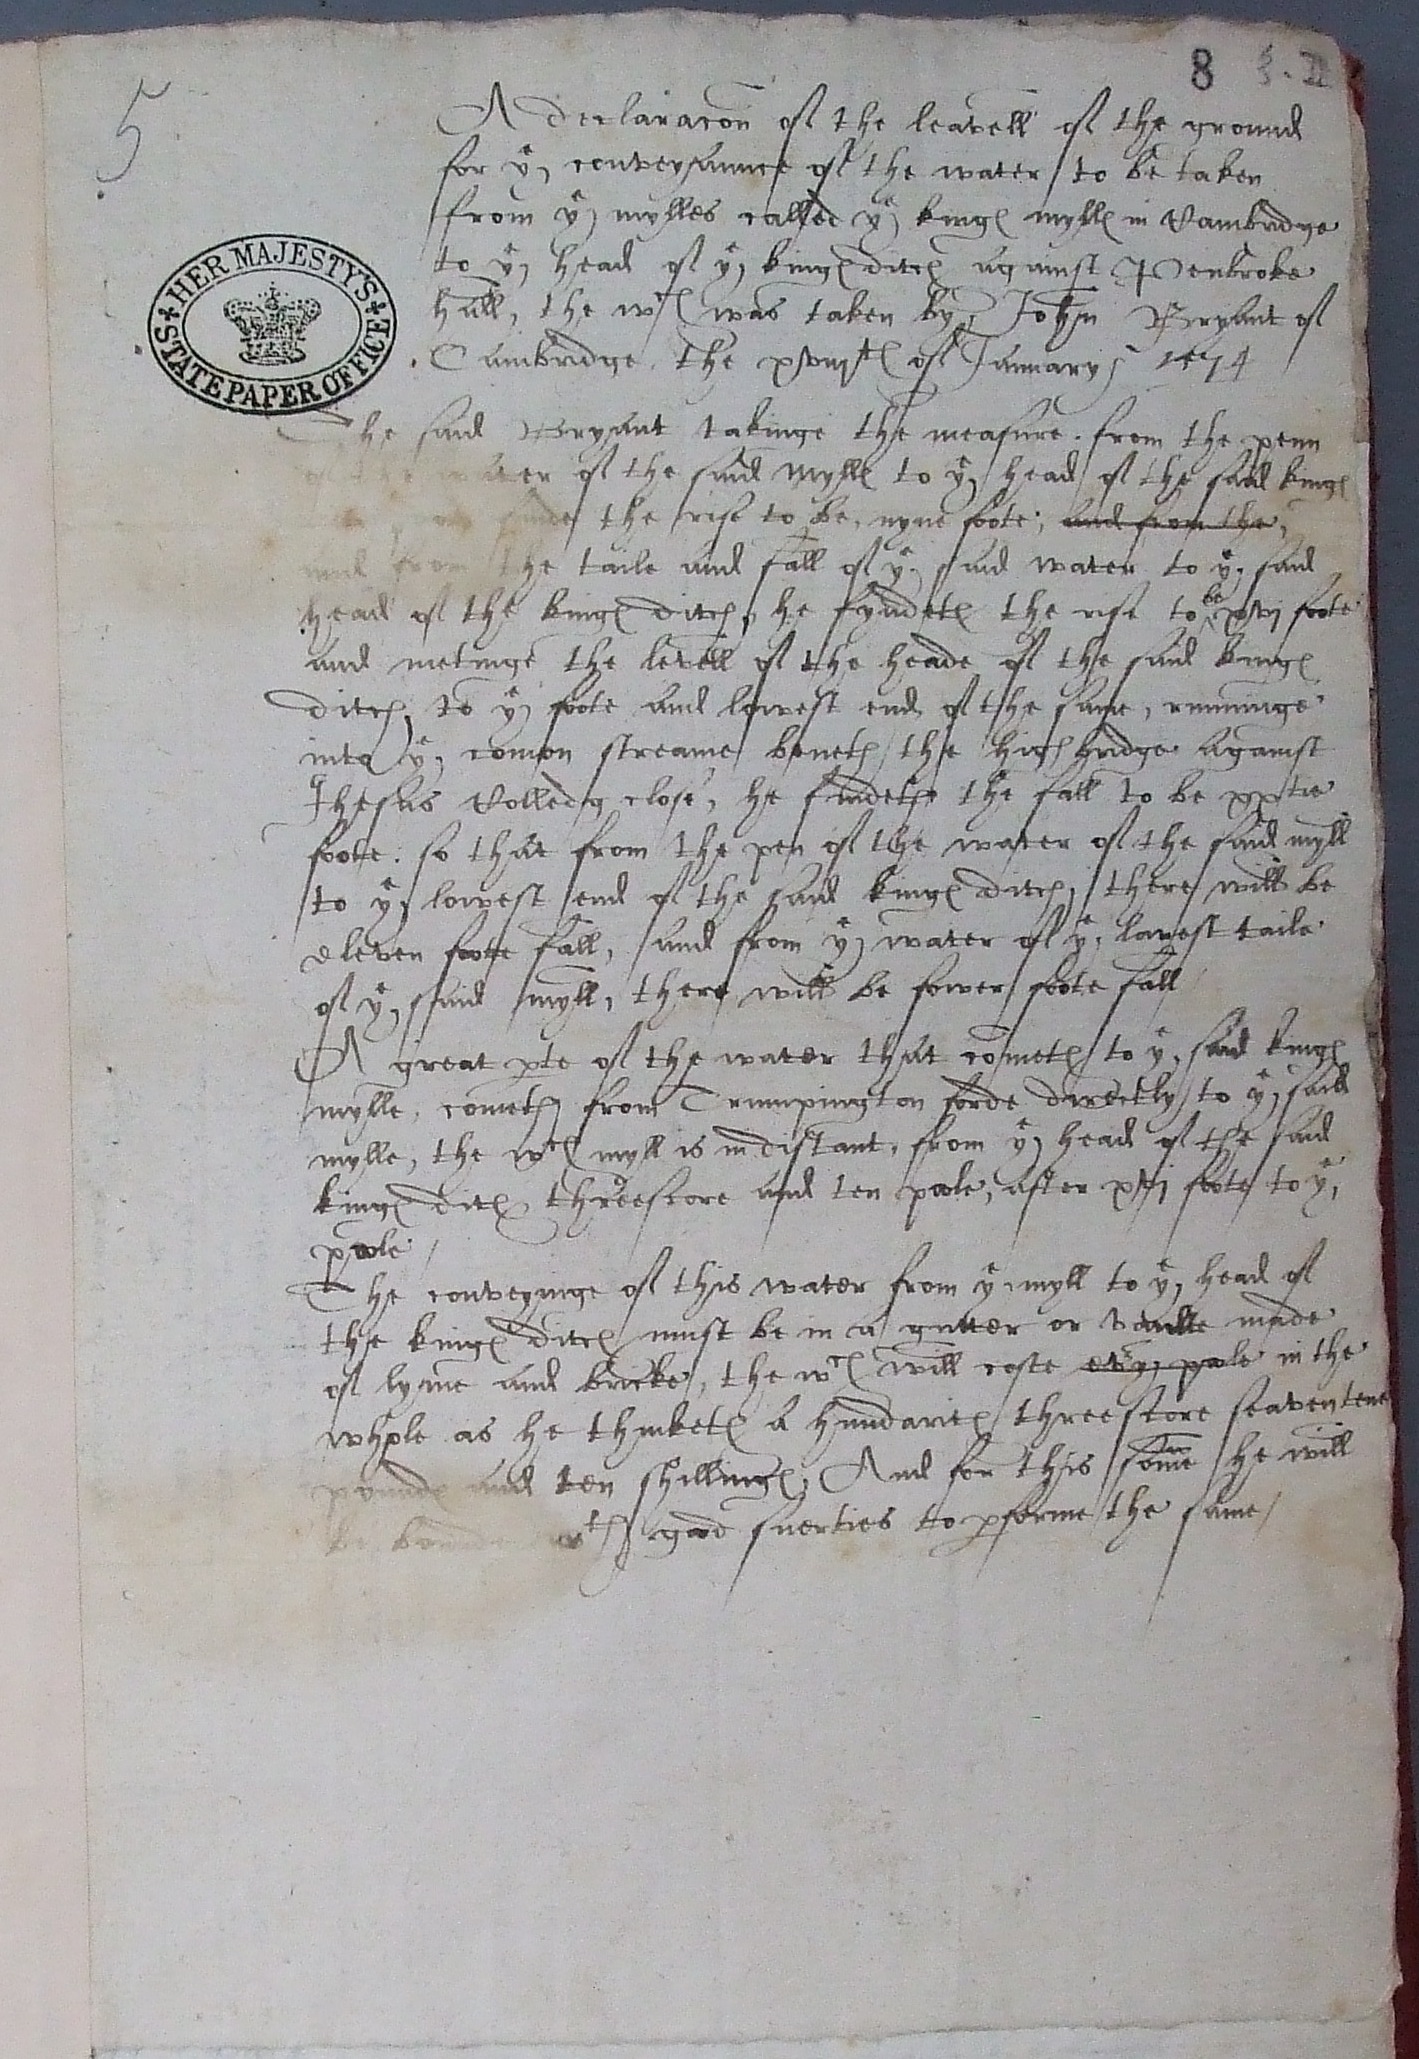 8
5
HER MAJESTY'S
STATE PAPER OFFICE
A declaracon of the leavell of the ground
for ye conveyaunce of the water to be taken
from ye mylles called ye kinges mylles in Cambridge
to ye head of ye kinges ditch against Penbroke
hall, the wch was taken by John Bryant of
Cambridge the xviijth of January 1574
The said Bryant takinge the measure from the penn
of the water of the said mylles to ye head of the said kinges
the rise to be nyne foote, and from the,
and from the taile and fall of ye said water to ye said
head of the kinges ditch, he fyndeth the rise to be xvj foote
and metinge the levell of the heade of the said kinges
ditch, to ye foote and lowest end of the same, runninge
into ye comon streame beneth the high bridge against
Jhesus Colledg close, he findethe the fall to be xxtie
foote. so that from the pen of the water of the said myll
to ye lowest end of the said kinges ditch, there will be
eleven foote fall, and from ye water of ye lowest taile
of ye said myll, there will be fower foote fall
A great pte of the water that cometh to ye said kinges
mylle, cometh from Trumpington forde directly to ye said
mylle, the wch myll is in distant, from ye head of the said
kinges ditch threescore and ten poole, after xvj foote to ye
poole
The conveyinge of this water from ye myll to ye head of
the kinges ditch must be in a gutter or vaulte made
of lyme and bricke, the wch will coste evy poole in the
whole as he thinketh a hundarith threescore seaventene
pounds and ten shillinges, And for this some he will
be bounde wth good suerties to pforme the same